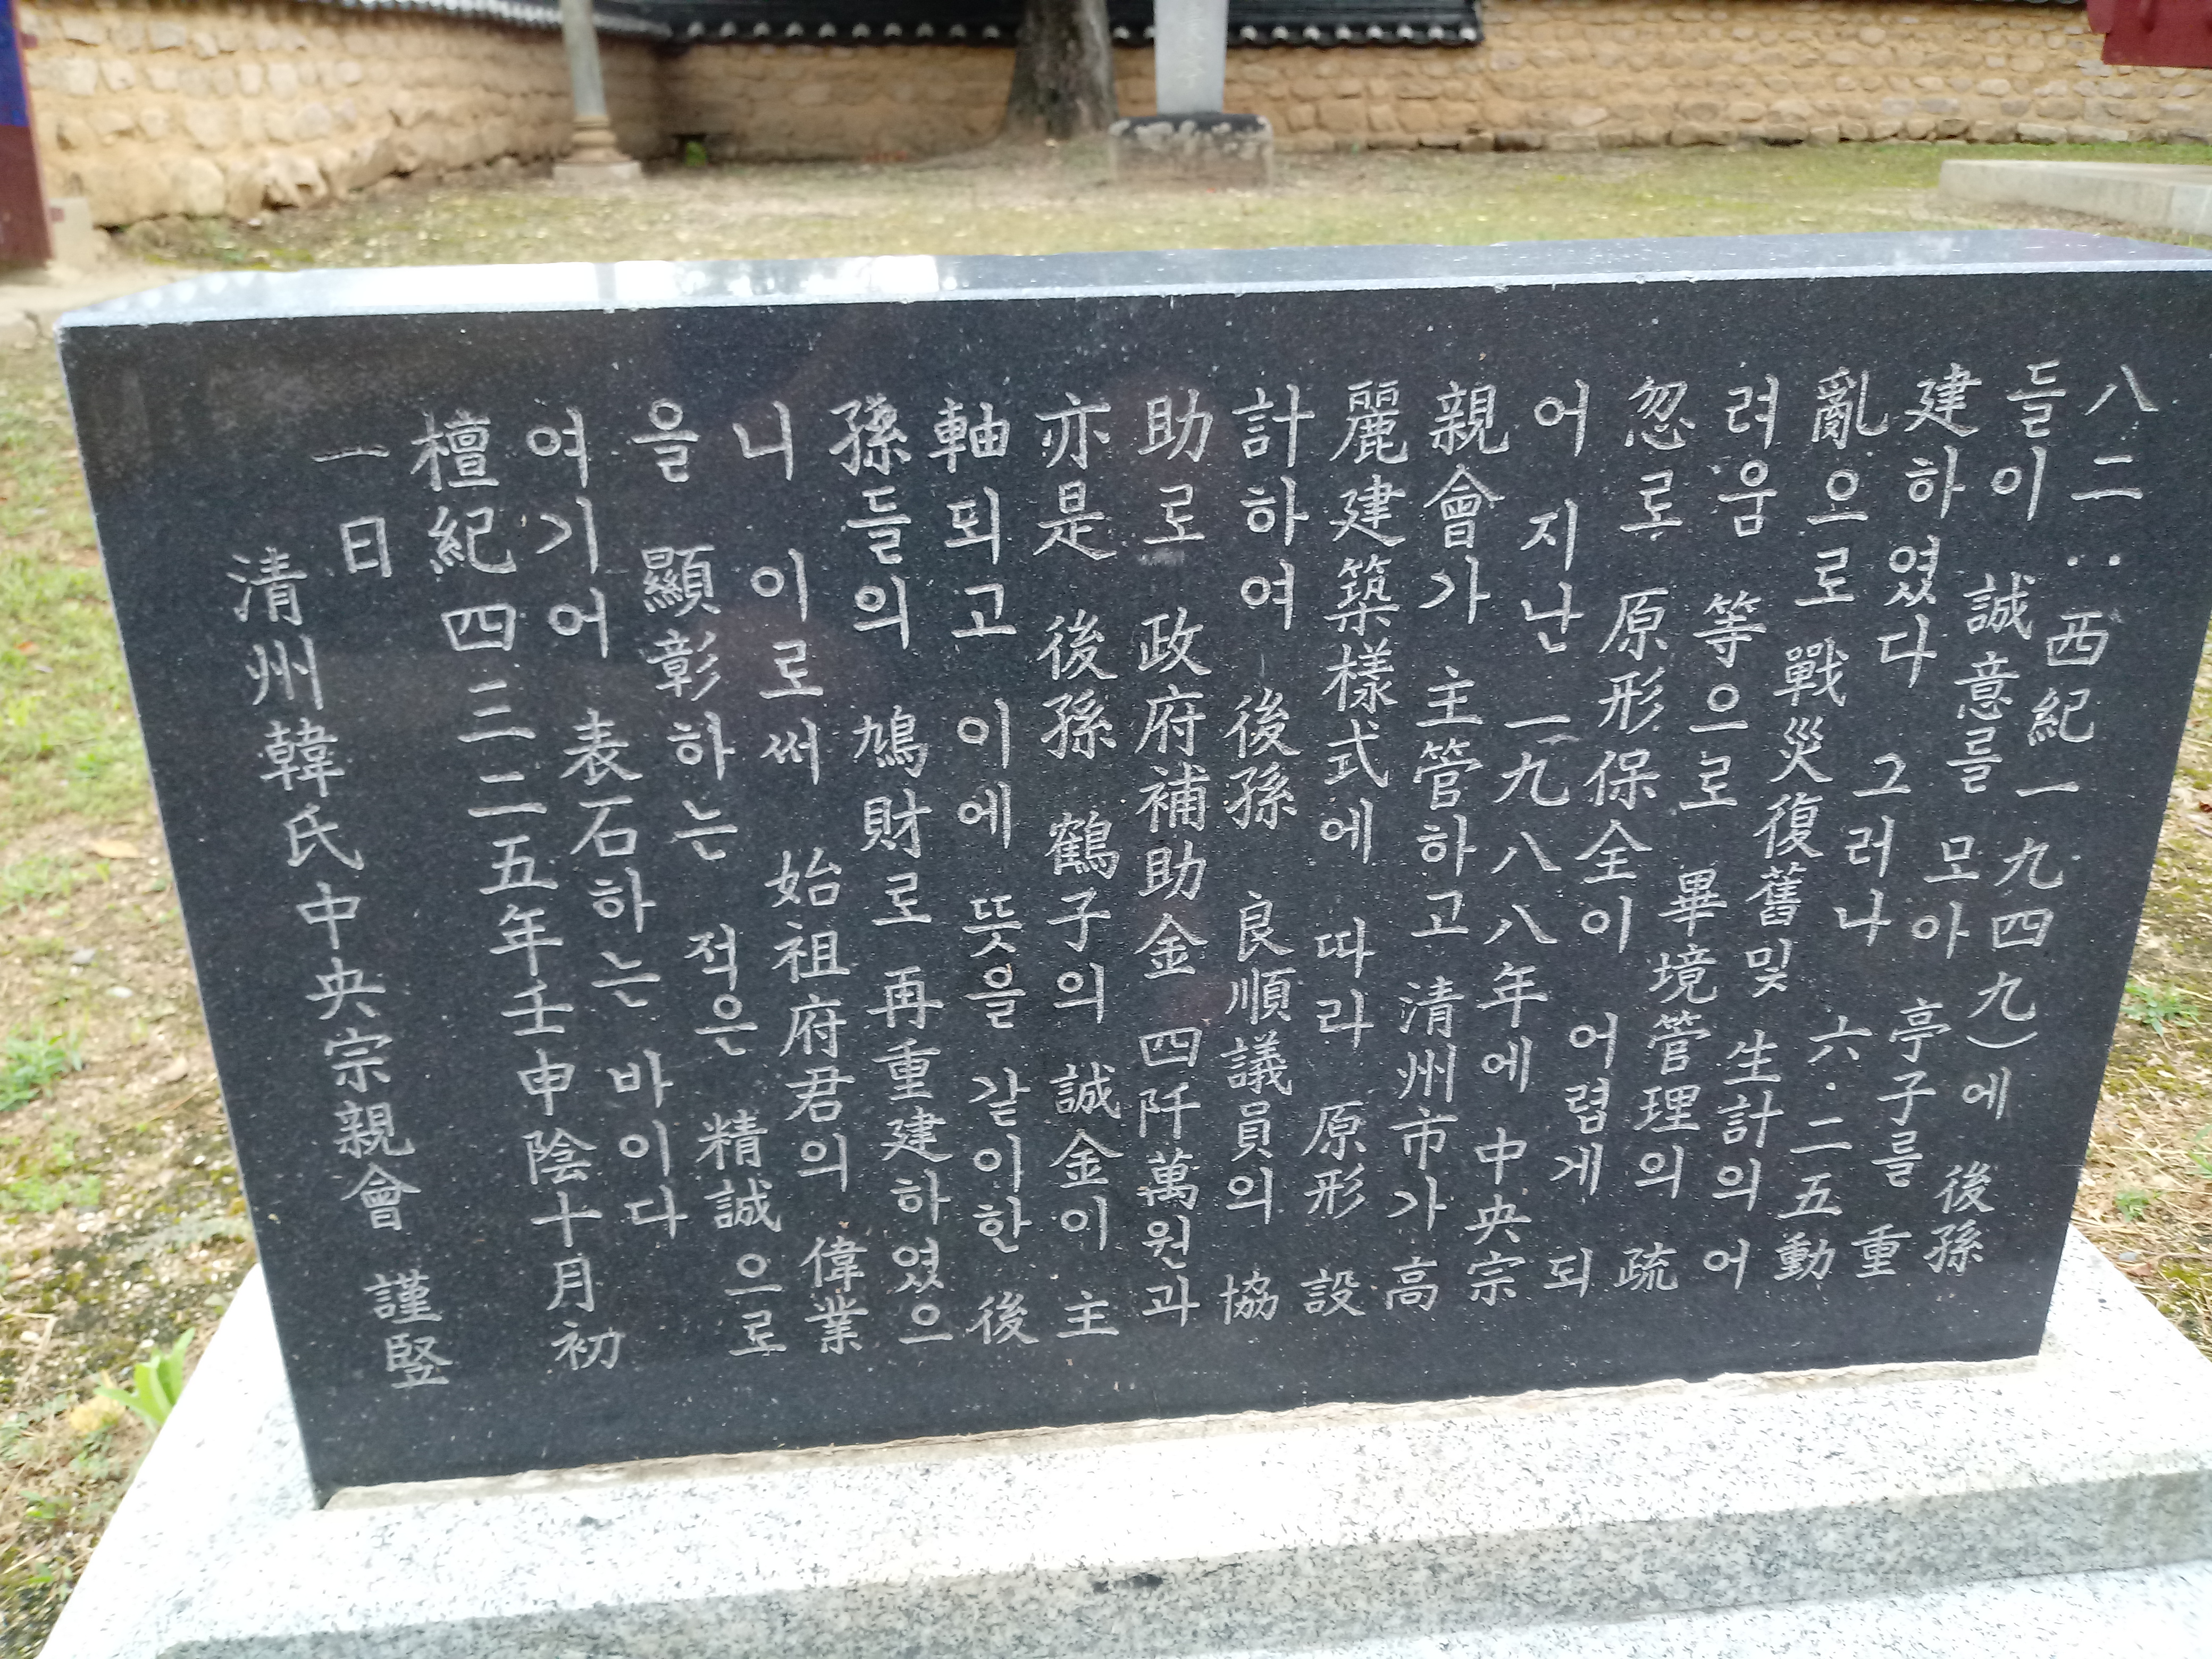 八二‥西紀一九四九)에 後孫
들이 誠意를 모아 亭子를 重
建하였다 그러나 六·二五動
亂으로 戰災復舊및 生計의 어
려움 等으로 畢境管理의 疏
忽로 原形保全이 어렵게 되
어 지난 一九八八年에 中央宗
親會가 主管하고 淸州市가 高
麗建築樣式에 따라 原形 設
計하여 後孫 良順議員의 協
助로 政府補助金 四阡萬원과
亦是 後孫 鶴子의 誠金이 主
軸되고 이에 뜻을 같이한 後
孫들의 鳩財로 再重建하였으
니 이로써 始祖府君의 偉業
을 顯彰하는 적은 精誠으로
여기어 表石하는 바이다
檀紀四三二五年壬申陰十月初
一日
淸州韓氏中央宗親會 謹竪